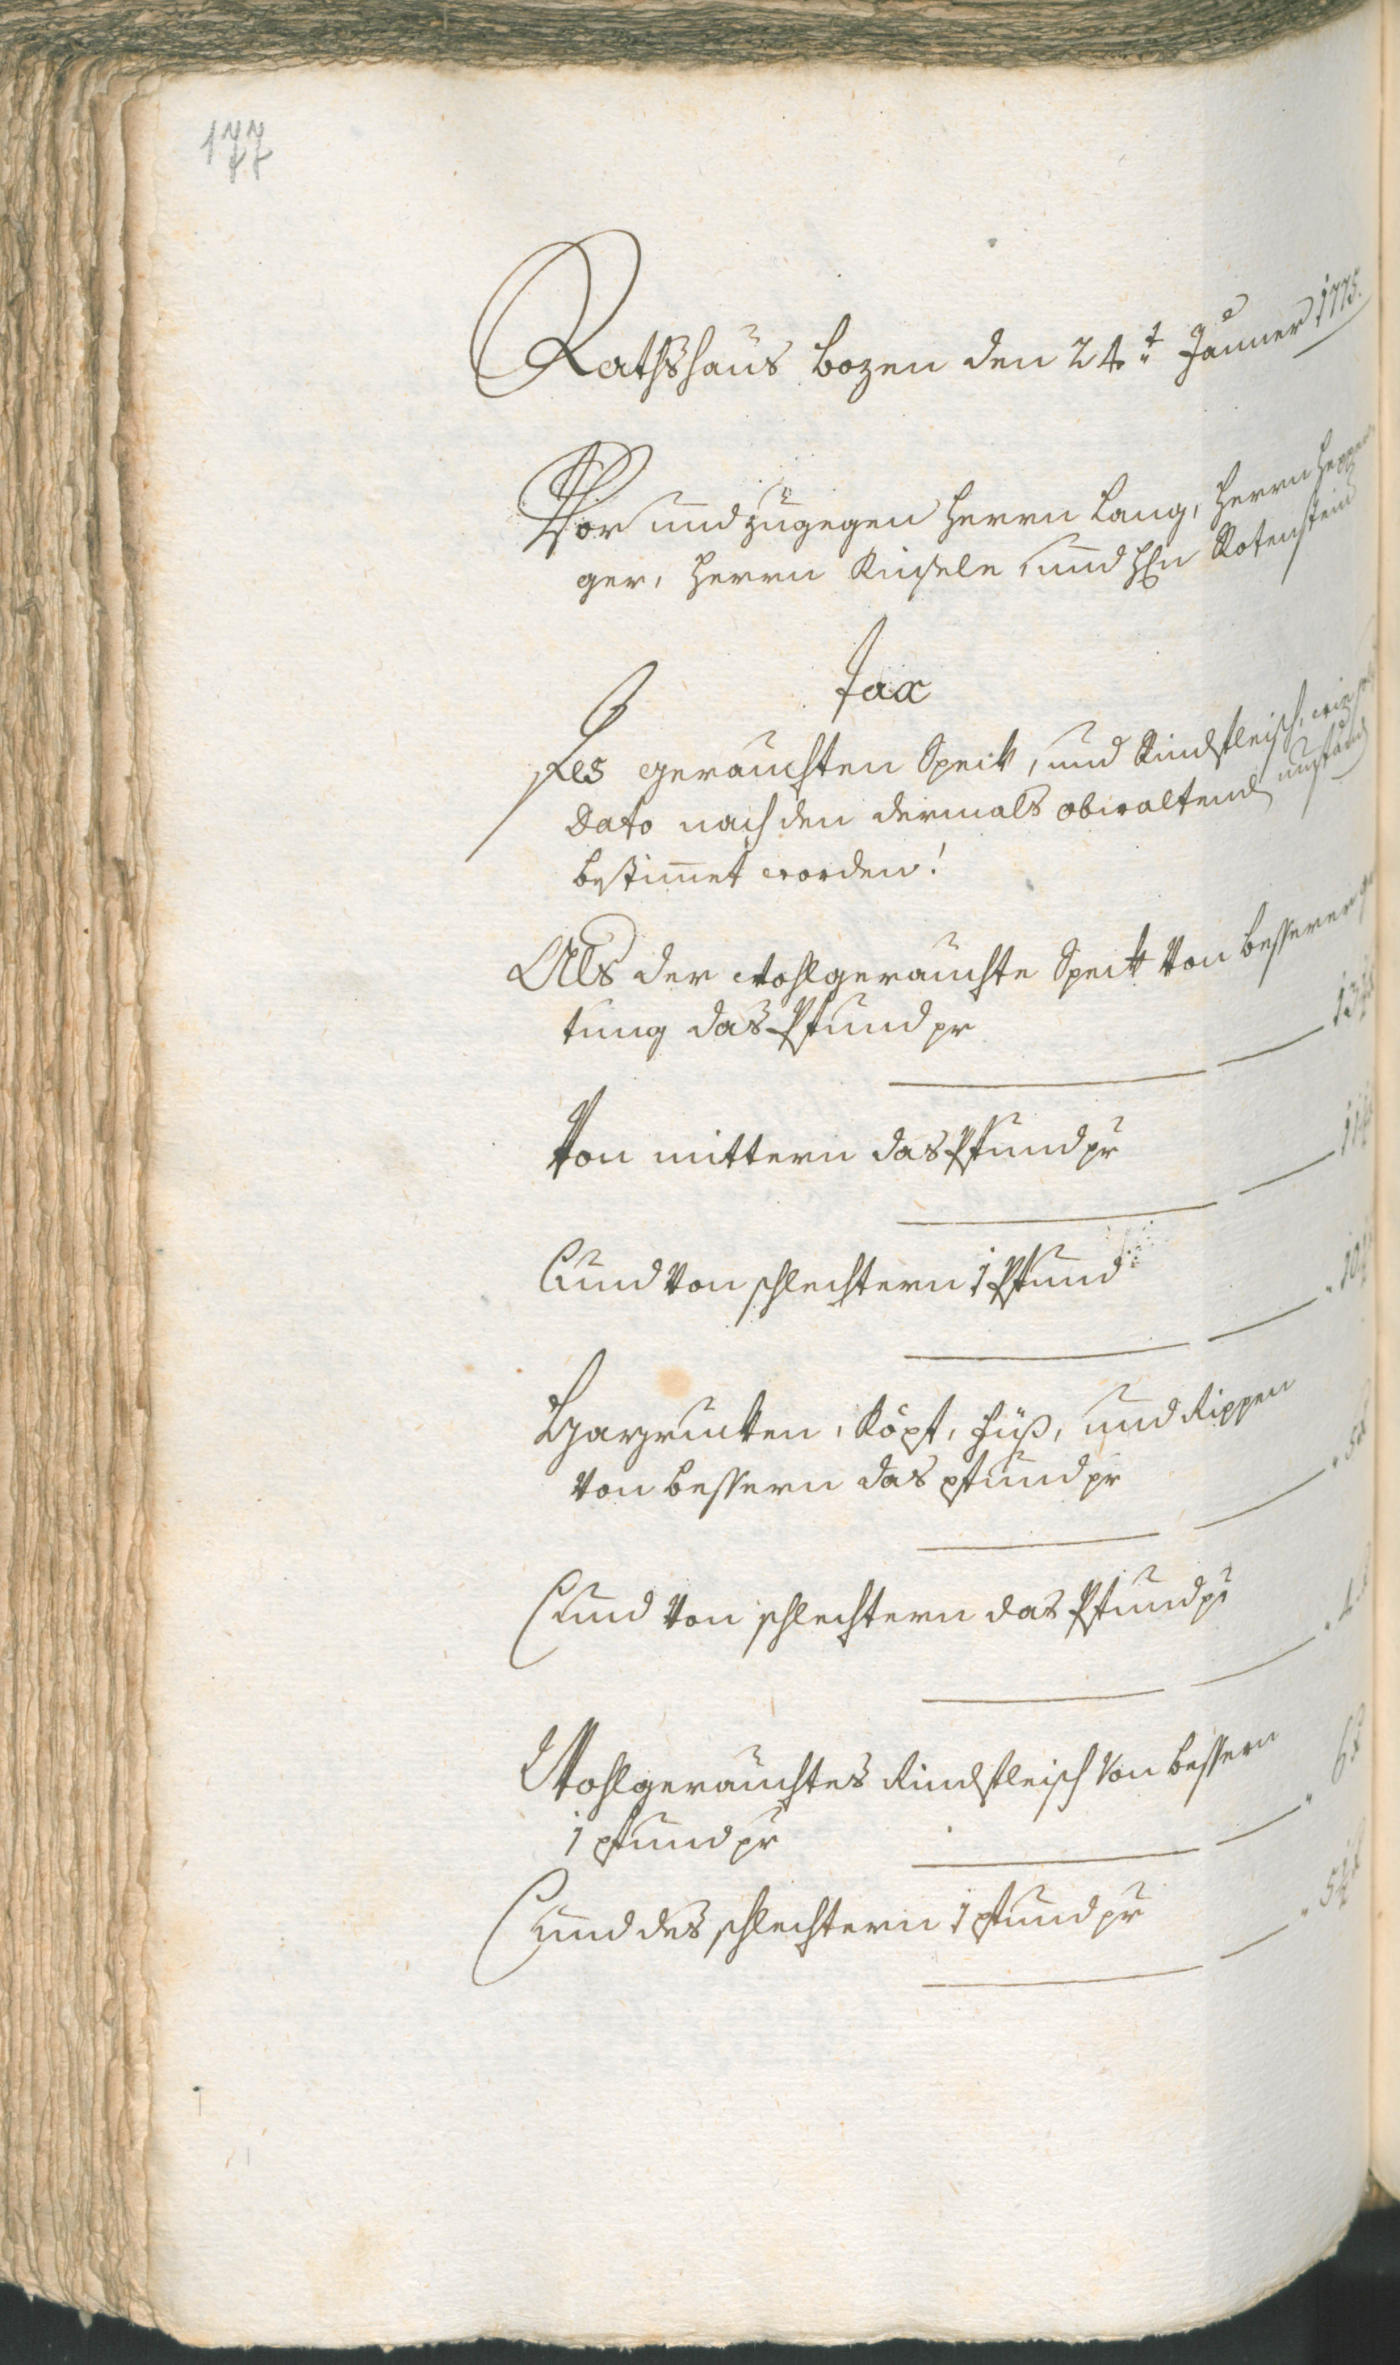 177
Rathshaus Bozen den 24.t Jänner 1775.
Vor und zugegen Herrn Lang, Herrn Hepper
ger, Herrn Kinsele, und Hn Rotenstein
Tax
Des geräuchten Speck, und Rindfleisch, wie
Dato nach den dermals obwaltend umständ
bestimet worden!
Als der wohlgeräuchte Speck von besserer ga
tung das Pfund pr
13
Von mittern das Pfund pr
11
Und von schlechtern 1 Pfund
10
Harrucken, Köpf, Füß, und Rippen
von bessern das pfund pr
5
Und von schlechtern das Pfund pr
4
Wohlgeräuchtes Rindfleisch von bessern
1 pfund pr
6
Und des schlechtern 1 pfund pr
5½